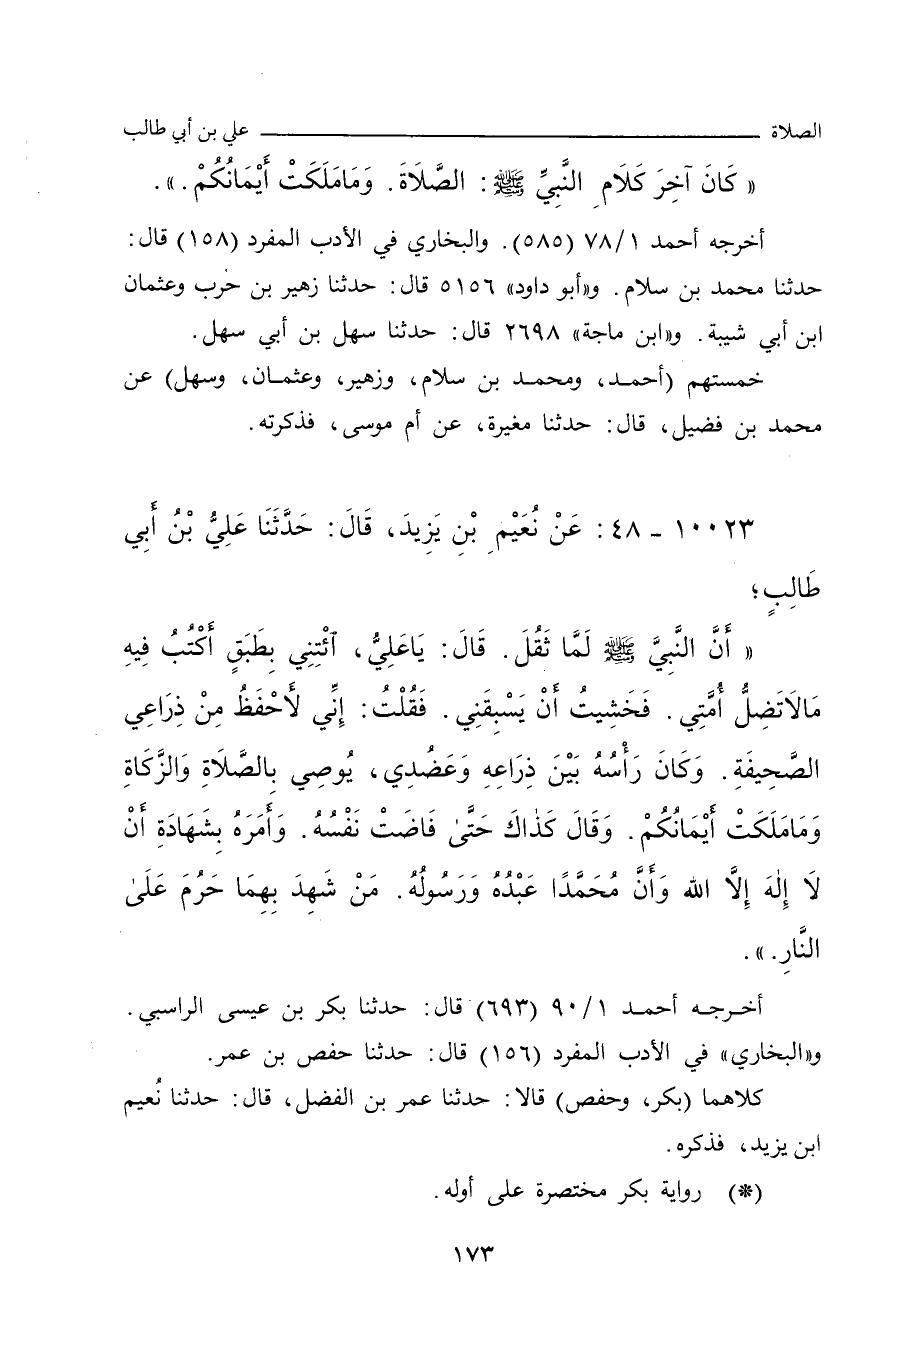 الصلاة ــــــــــ علي بن أبي طالب
« كَانَ آخِرَ كَلَامِ النَّبِيِّ ﷺ : الصَّلَاةَ . وَمَامَلَكَتْ أَيْمَانُكُمْ . » .
أخرجه أحمد ٧٨/١ (٥٨٥) . والبخاري في الأدب المفرد (١٥٨) قال :
حدثنا محمد بن سلام . و«أبو داود» ٥١٥٦ قال : حدثنا زهير بن حرب وعثمان
ابن أبي شيبة . و«ابن ماجة» ٢٦٩٨ قال : حدثنا سهل بن أبي سهل .
خمستهم (أحمد ، ومحمد بن سلام ، وزهير ، وعثمان ، وسهل) عن
محمد بن فضيل ، قال : حدثنا مغيرة ، عن أم موسى ، فذكرته .
١٠٠٢٣ - ٤٨ : عَنْ نُعَيْمِ بْنِ يَزِيدَ ، قَالَ : حَدَّثَنَا عَلِيُّ بْنُ أَبِي
طَالِبٍ ؛
« أَنَّ النَّبِيَّ ﷺ لَمَّا ثَقُلَ . قَالَ : يَاعَلِيُّ ، ائْتِنِي بِطَبَقٍ أَكْتُبُ فِيهِ
مَالَاتَضِلُّ أُمَّتِي . فَخَشِيتُ أَنْ يَسْبِقَنِي . فَقُلْتُ : إِنِّي لَأَحْفَظُ مِنْ ذِرَاعِي
الصَّحِيفَةِ . وَكَانَ رَأْسُهُ بَيْنَ ذِرَاعِهِ وَعَضُدِي ، يُوصِي بِالصَّلَاةِ وَالزَّكَاةِ
وَمَامَلَكَتْ أَيْمَانُكُمْ . وَقَالَ كَذَاكَ حَتَّىٰ فَاضَتْ نَفْسُهُ . وَأَمَرَهُ بِشَهَادَةِ أَنْ
لَا إِلٰهَ إِلَّا الله وَأَنَّ مُحَمَّدًا عَبْدُهُ وَرَسُولُهُ . مَنْ شَهِدَ بِهِمَا حَرُمَ عَلَىٰ
النَّارِ . » .
أخرجه أحمد ٩٠/١ (٦٩٣) قال : حدثنا بكر بن عيسى الراسبي .
و«البخاري» في الأدب المفرد (١٥٦) قال : حدثنا حفص بن عمر .
كلاهما (بكر ، وحفص) قالا : حدثنا عمر بن الفضل ، قال : حدثنا نُعيم
ابن يزيد ، فذكره .
(*) رواية بكر مختصرة على أوله .
١٧٣